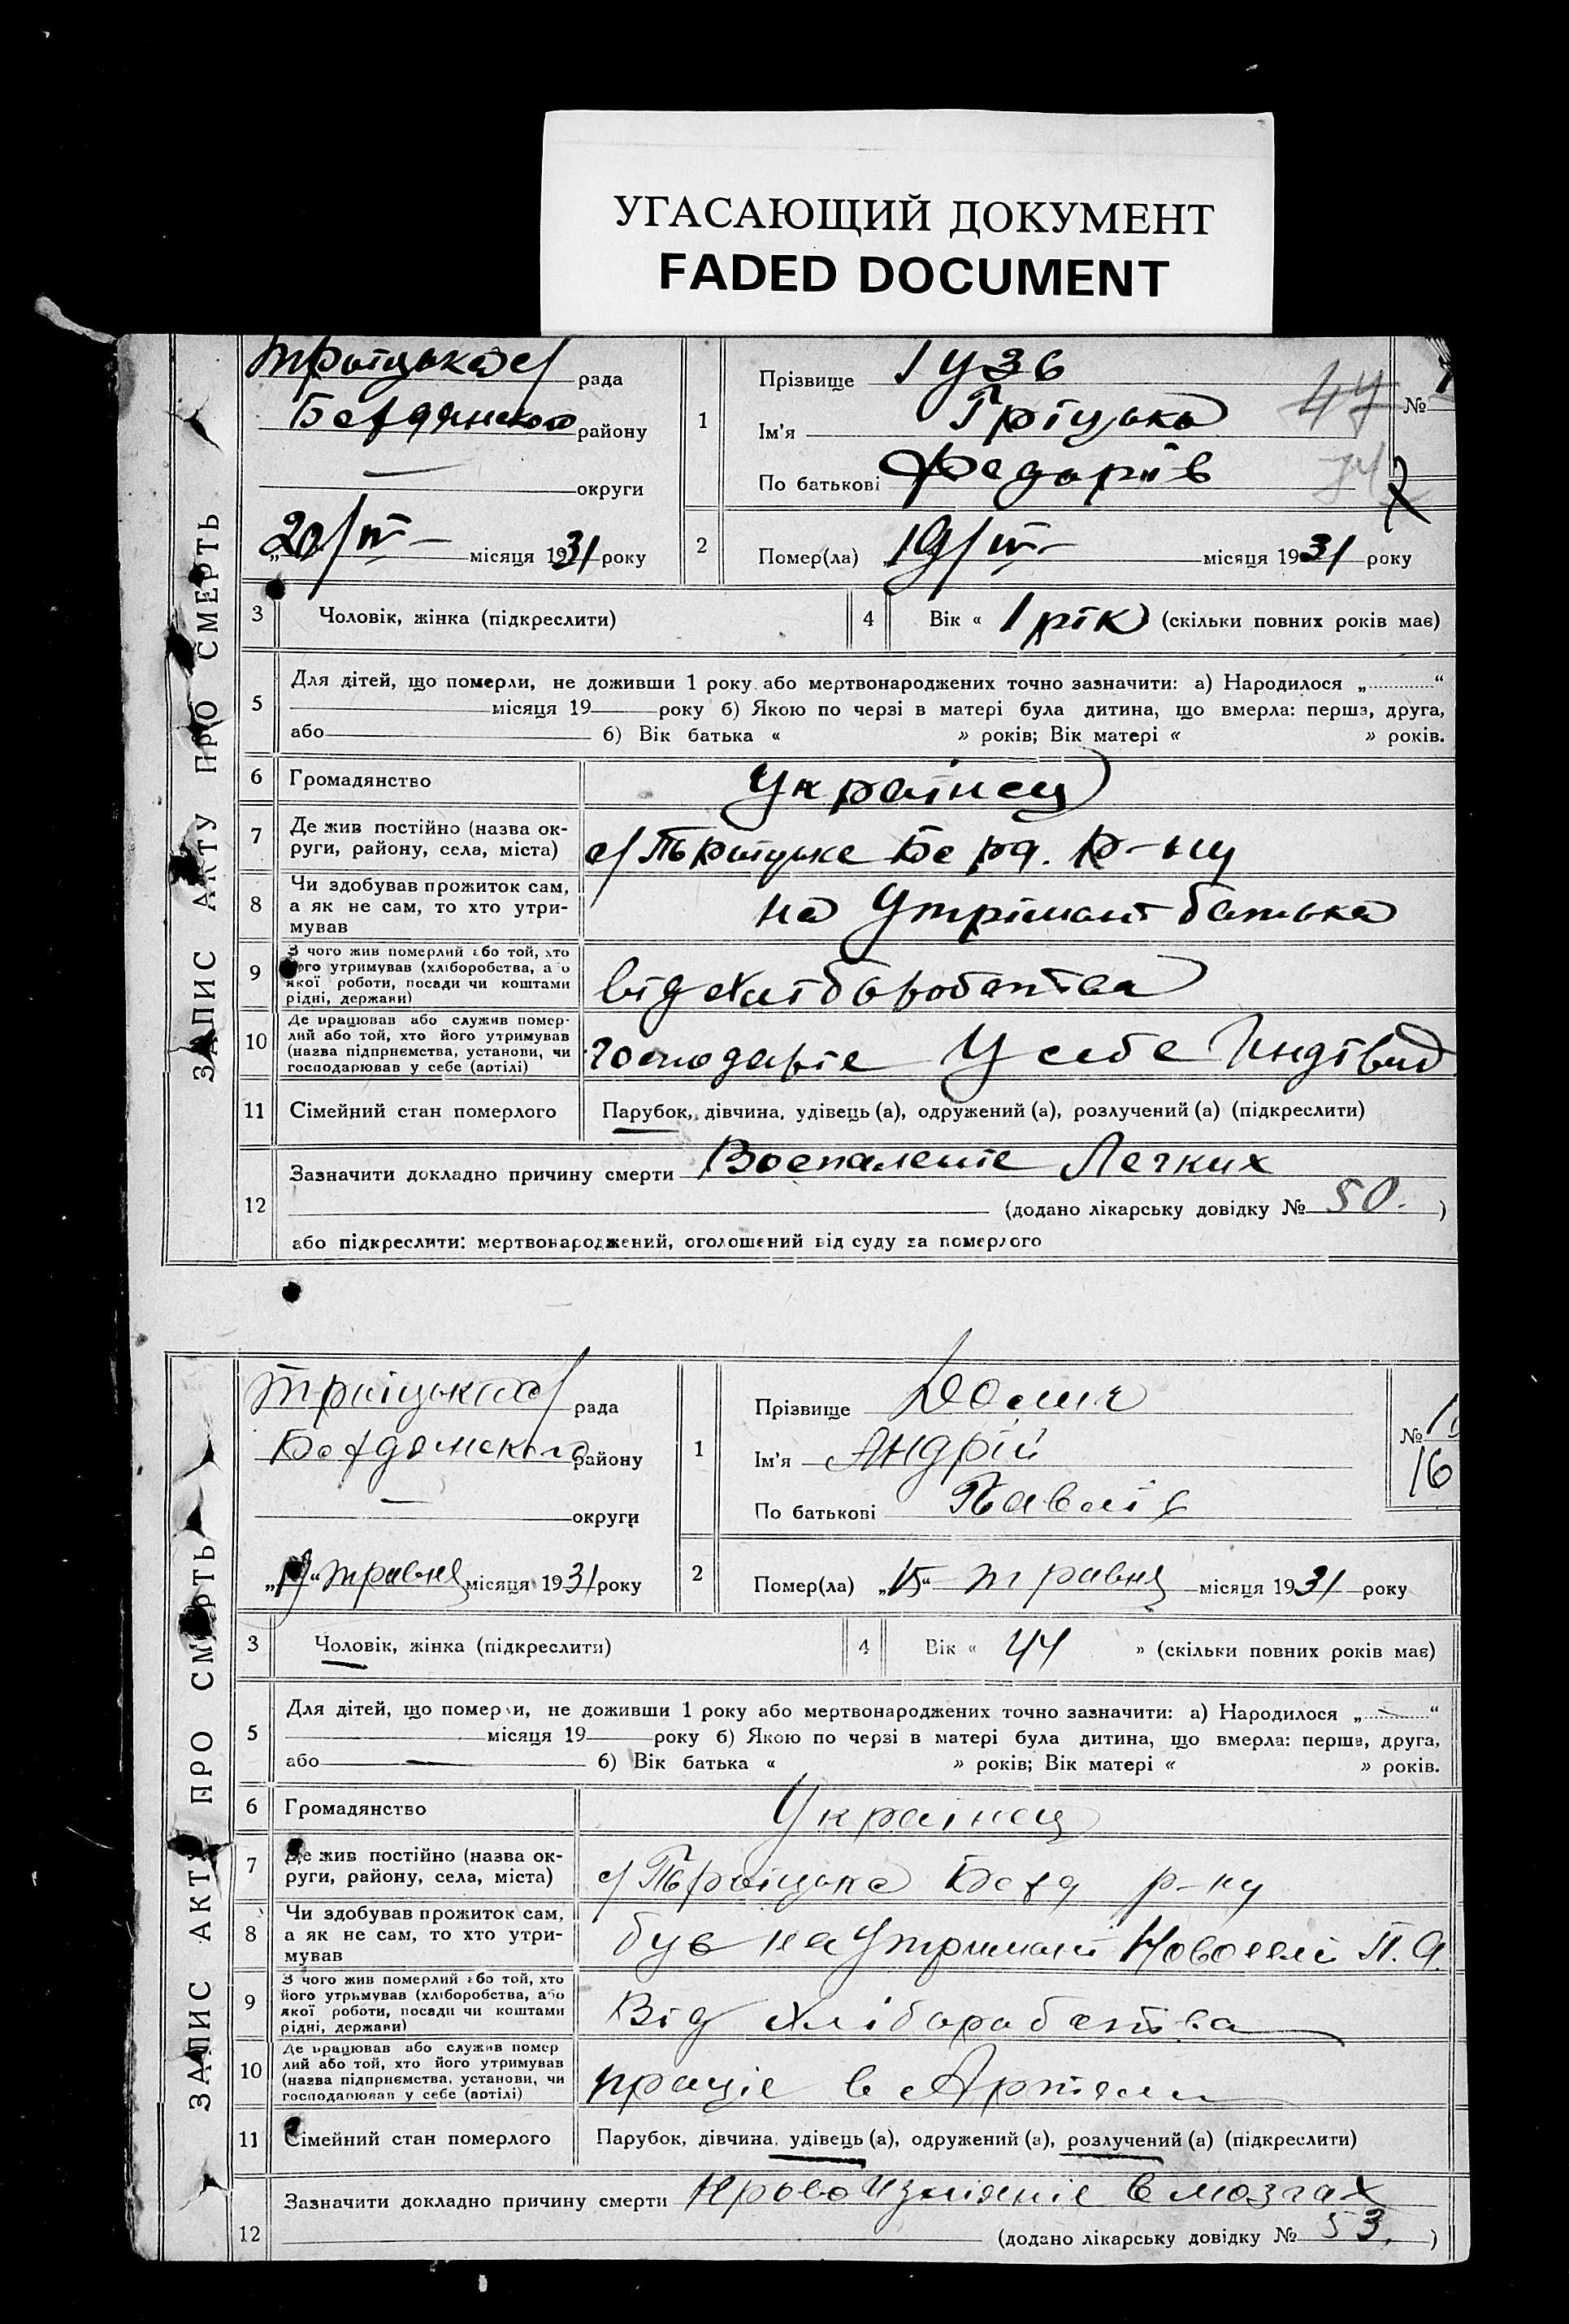 УГАСАЮЩИЙ ДОКУМЕНТ
FADED DOCUMENT
ЗАПИС АКТУ ПРО СМЕРТЬ
Троїцька с/ рада
Бердянського району
— округи
„20/IV — місяця 1931 року
1
Прізвище Гузь
Ім'я Гріцько
По батькові Федорів
№
47
2
Помер(ла) 19/IV — місяця 1931 року
3 Чоловік, жінка (підкреслити)
4 Вік « 1 рік (скільки повних років має)
5 Для дітей, що померли, не доживши 1 року або мертвонароджених точно зазначити: а) Народилося „ “
місяця 19 року б) Якою по черзі в матері була дитина, що вмерла: перша, друга,
або б) Вік батька « » років; Вік матері « » років.
6 Громадянство Українец
7 Де жив постійно (назва ок-
руги, району, села, міста) с/ Троїцьке Берд. р-ну
8 Чи здобував прожиток сам,
а як не сам, то хто утри-
мував на утрімані батька
9 З чого жив померлий або той, хто
його утримував (хліборобства, або
якої роботи, посади чи коштами
рідні, держави) від хліборобства
10 Де працював або служив помер-
лий або той, хто його утримував
(назва підприємства, установи, чи
господарював у себе (артілі) господаріє у себе Індівид
11 Сімейний стан померлого Парубок, дівчина, удівець (а), одружений (а), розлучений (а) (підкреслити)
12 Зазначити докладно причину смерти Воспаленіе Легких
(додано лікарську довідку № 50. )
або підкреслити: мертвонароджений, оголошений від суду за померлого
ЗАПИС АКТУ ПРО СМЕРТЬ
Троїцька с/ рада
Бердянського району
— округи
„17“ травня місяця 1931 року
1
Прізвище
Ім'я Андрій
По батькові Павлів
№
16
2
Помер(ла) „15“ травня місяця 1931 року
3 Чоловік, жінка (підкреслити)
4 Вік « 44 » (скільки повних років має)
5 Для дітей, що померли, не доживши 1 року або мертвонароджених точно зазначити: а) Народилося „ “
місяця 19 року б) Якою по черзі в матері була дитина, що вмерла: перша, друга,
або — б) Вік батька « » років; Вік матері « » років.
6 Громадянство Українец
7 Де жив постійно (назва ок-
руги, району, села, міста) с/ Троїцьке Берд р-ну
8 Чи здобував прожиток сам,
а як не сам, то хто утри-
мував був на утримані П. Я.
9 З чого жив померлий або той, хто
його утримував (хліборобства, або
якої роботи, посади чи коштами
рідні, держави) Від хліборобства
10 Де працював або служив помер
лий або той, хто його утримував
(назва підприємства, установи, чи
господарював у себе (артілі) праціє в Артели
11 Сімейний стан померлого Парубок, дівчина, удівець (а), одружений (а), розлучений (а) (підкреслити)
12 Зазначити докладно причину смерти Кровоизліяніе в мозгах
(додано лікарську довідку № 53. )